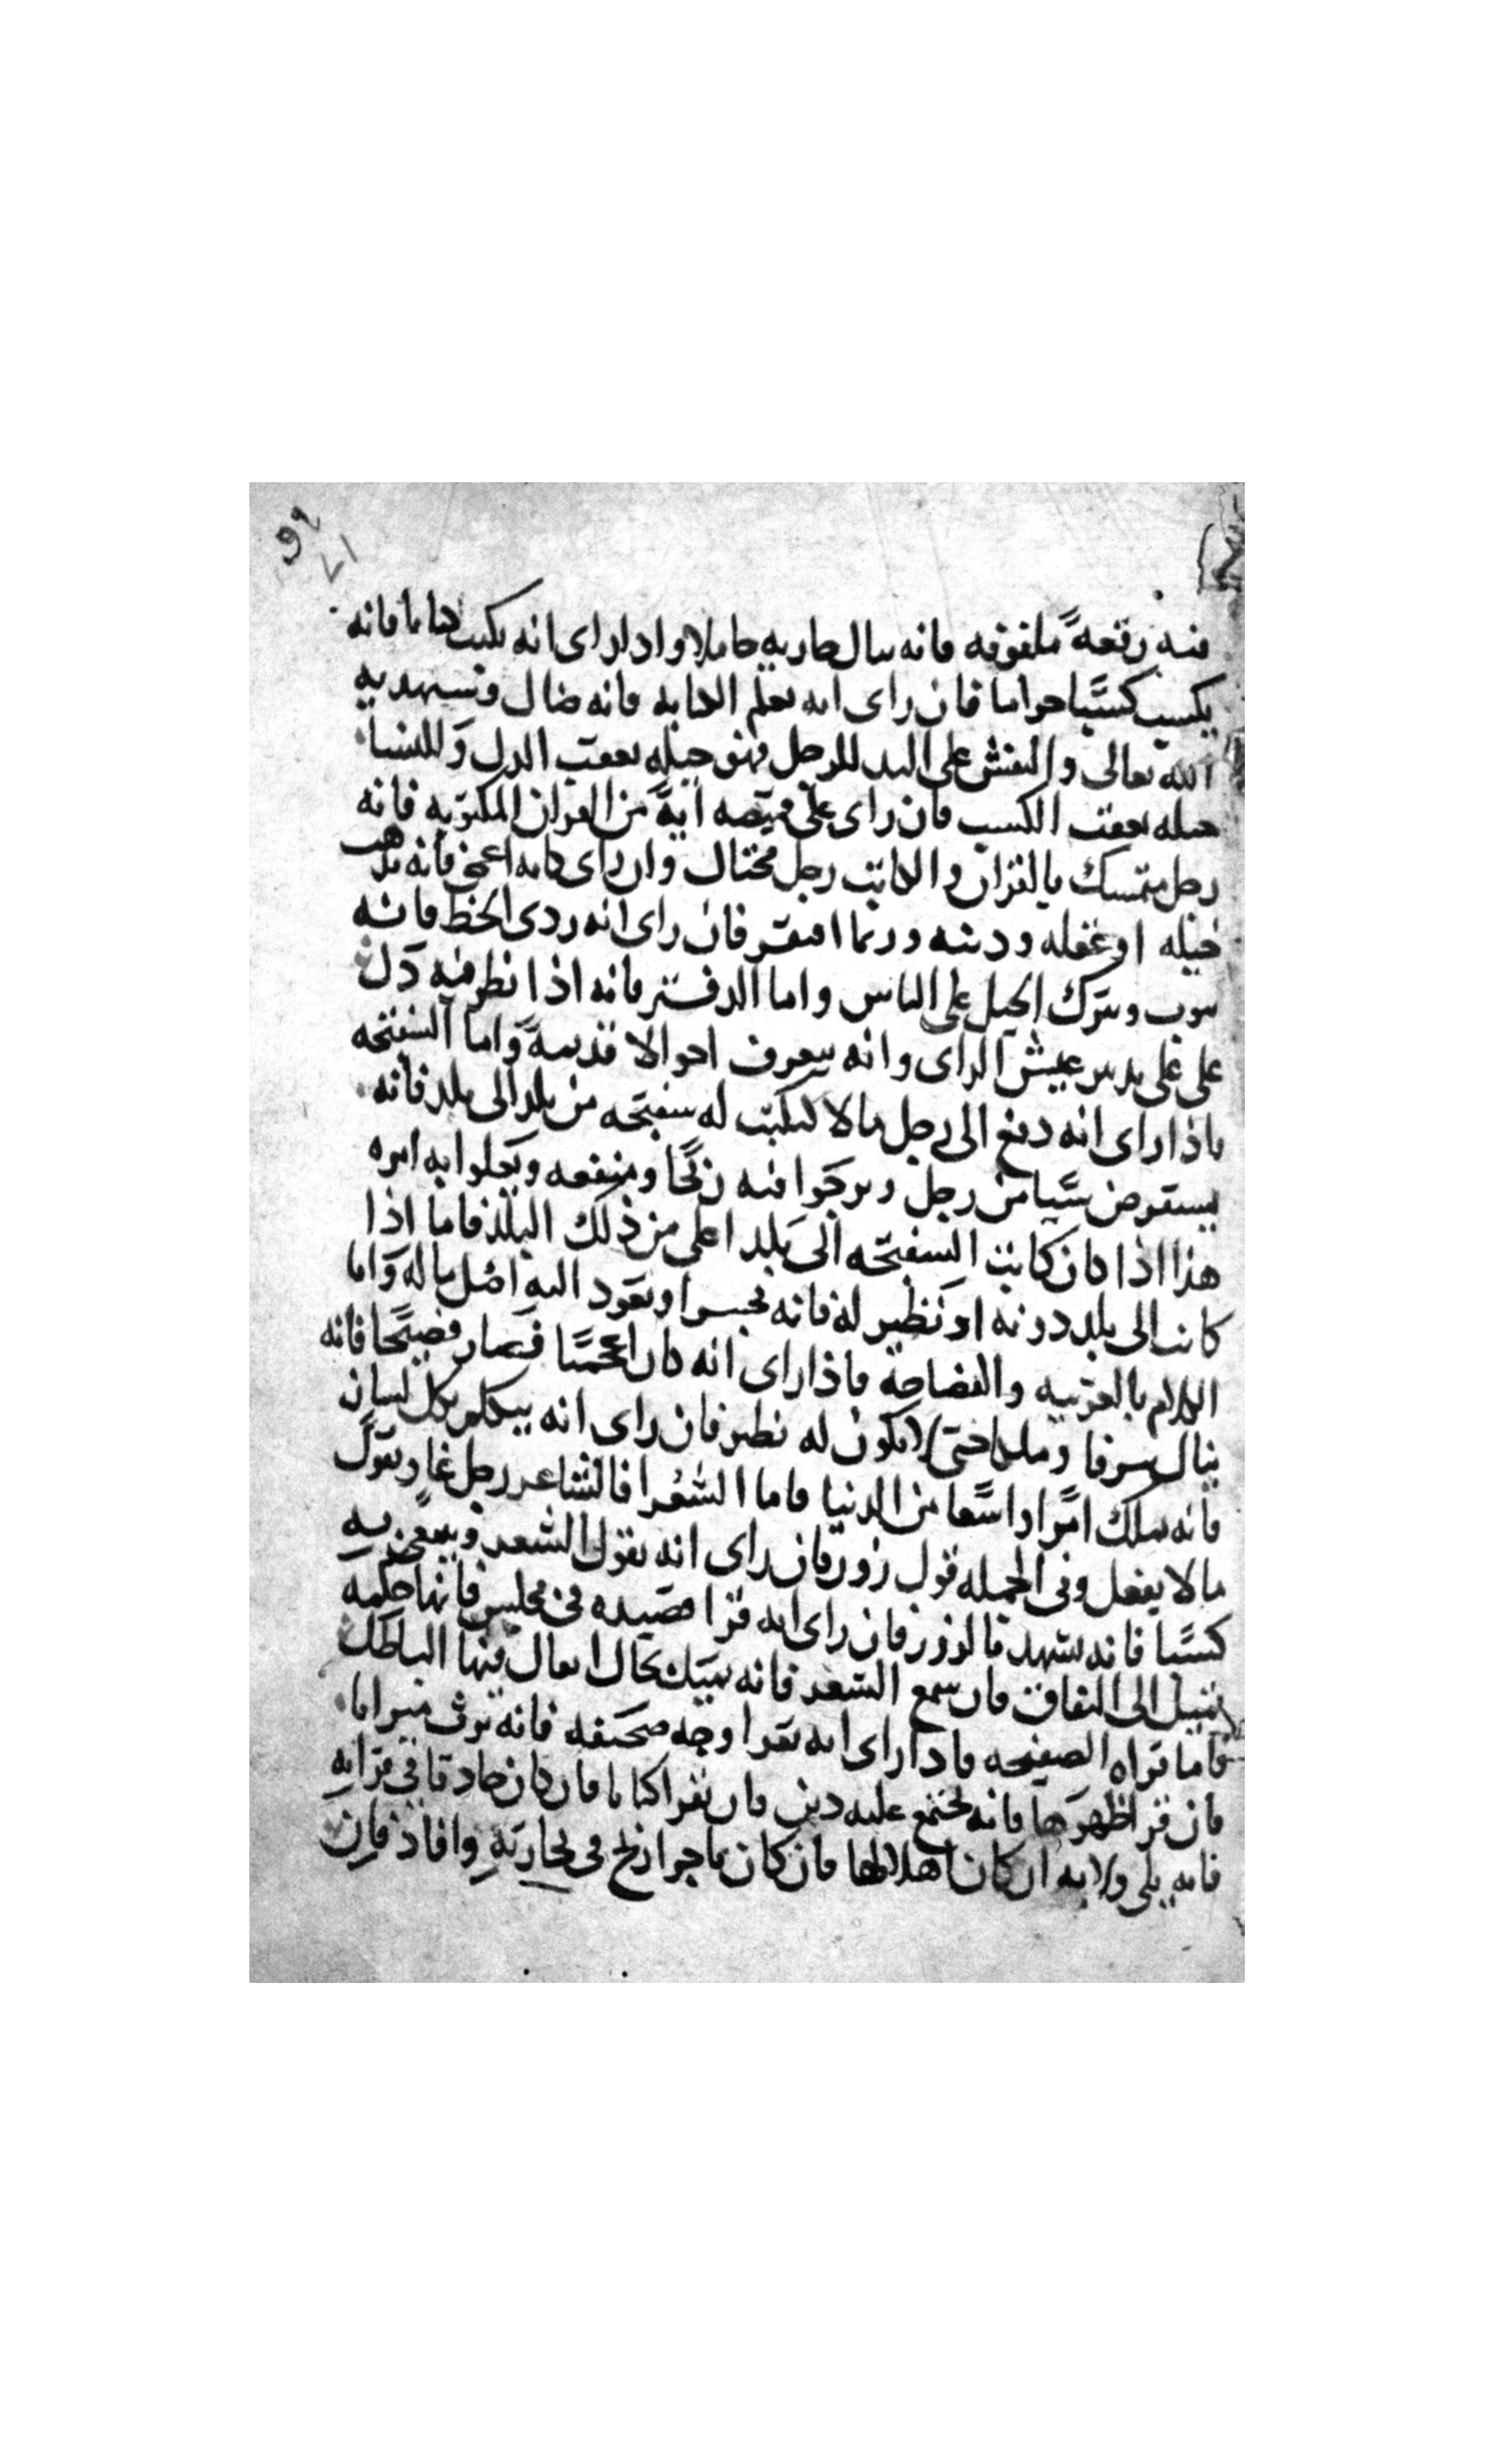 فيه رقعة ملفوفه فانه ينال جاريه حاملا واذا راى انه يكتب كتابا فانه
يكسب كسبا حراما فان راى انه تعلم الكتابه فانه ضال وسيهديه
الله تعالى والنقش على اليد للرجل فهو حيله تعقب الذل وللنساء
حيله تعقب الكسب فان راى على قميصه اية من القران المكتوبه فانه
رجل متمسك بالقران والكاتب رجل محتال وان راى كاتبه اعمى فانه تذهب
حيله او غفله ودينه وربما افتقر فان راى انه ردى الخط فانه
يتوب ويترك الحيل على الناس واما الدفتر فانه اذا نظر فيه دل
على على عيش الراى وانه يعرف احوالا قديمة واما السفتجه
فاذا راى انه دفع الى رجل مالا ليكتب له سفتجه من بلد الى بلد فانه
يستقرض شيا من رجل ويرجوا فيه ربحا ومنفعه ويعلوا به امره
هذا اذا كان كانت السفتجه الى بلد اعلى من ذلك البلد فاما اذا
كانت الى بلد دونه او نظير له فانه يخسر او يعود اليه اصل ماله واما
الكلام بالعربيه والفصاحة فاذا راى انه كان اعجميا فصار فصيحا فانه
ينال شرفا وملكا حتى لا يكون له نظير فان راى انه يتكلم بكل لسان
فانه يملك امرا واسعا من الدنيا فاما الشعرا فالشاعر رجل غاو يقول
ما لا يفعل وفى الجمله قول زور فان راى انه يقول الشعر ويبغى به
كسبا فانه يشهد بالزور فان راى انه قرا قصيده فى مجلس فانها حكمه
تميل الى النفاق فان سمع الشعر فانه يقال فيها الباطل
فاما قراه الصفيحه فاذا راى انه يقرا وجه صحيفه فانه يرث ميراثا
فان قرا ظهرها فانه يجتمع عليه دين فان يقرا كتابا فان كان حاذقا فى قرايته
فانه يلى ولايه ان كان اهلا لها فان كان تاجرا ربح فى تجارته وافاد فان